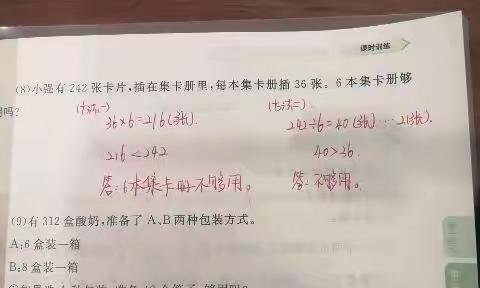 课时训练
(8)小强有 242 张卡片,插在集卡册里,每本集卡册插 36 张。6 本集卡册够
用吗?
(方法一)
36×6=216(张).
216<242
答:6本集卡册不够用。
(方法二).
242÷6=40(张)……2(张).
40>36.
答:不够用。
(9)有 312 盒酸奶,准备了 A、B 两种包装方式。
A:6 盒装一箱
B:8 盒装一箱